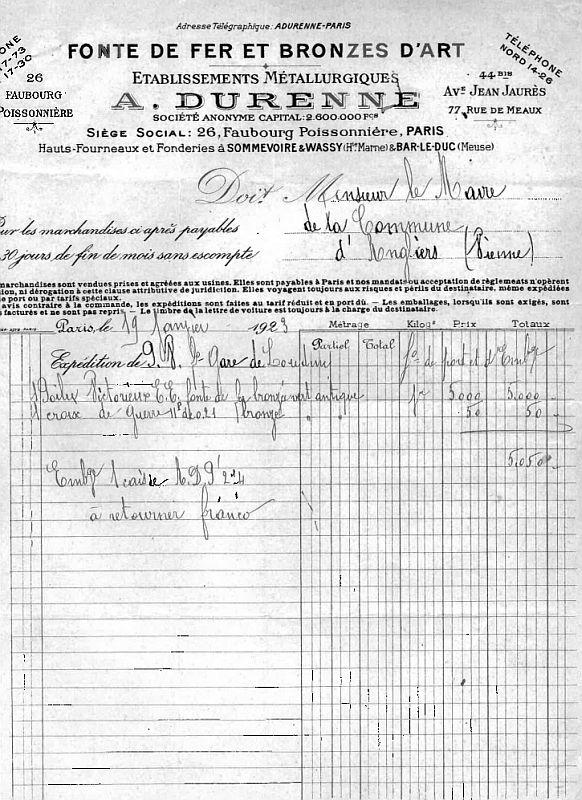 Adresse Télégraphique: ADURENNE-PARIS
FONTE DE FER ET BRONZES D'ART
ONE
7-73
17-30
TÉLÉPHONE
NORD 14-26
26
FAUBOURG
POISSONNIÈRE
ETABLISSEMENTS MÉTALLURGIQUES
A. DURENNE
SOCIÉTÉ ANONYME CAPITAL: 2.600.000 Fcs
44 BIS
AVE JEAN JAURÈS
77, RUE DE MEAUX
SIÈGE SOCIAL: 26, Faubourg Poissonnière, PARIS
Hauts-Fourneaux et Fonderies à SOMMEVOIRE & WASSY (Hte Marne) & BAR-LE-DUC (Meuse)
Doit Monsieur le Maire
de la Commune
d'Angliers (Vienne)
our les marchandises ci après payables
30 jours de fin de mois sans escompte
marchandises sont vendues prises et agréées aux usines. Elles sont payables à Paris et nos mandats ou acceptation de règlements n'opèrent
tion, ni dérogation à cette clause attributive de juridiction. Elles voyagent toujours aux risques et périls du destinataire, même expédiées
e port ou par tarifs spéciaux.
avis contraire à la commande, les expéditions sont faites au tarif réduit et en port dû. — Les emballages, lorsqu'ils sont exigés, sont
facturés et ne sont pas repris. — Le timbre de la lettre de voiture est toujours à la charge du destinataire.
Paris, le 19 Janvier 1923
Métrage Kilogs Prix Totaux
Partiel Total
Expédition de P.V. Gare de Loudun fco de port et d'Embge
1 Poilu Victorieux fonte de fer bronzé vert antique 5.000 5.000
1 croix de Guerre bronze 50 50
5.050
Embge 1 caisse
à retourner franco